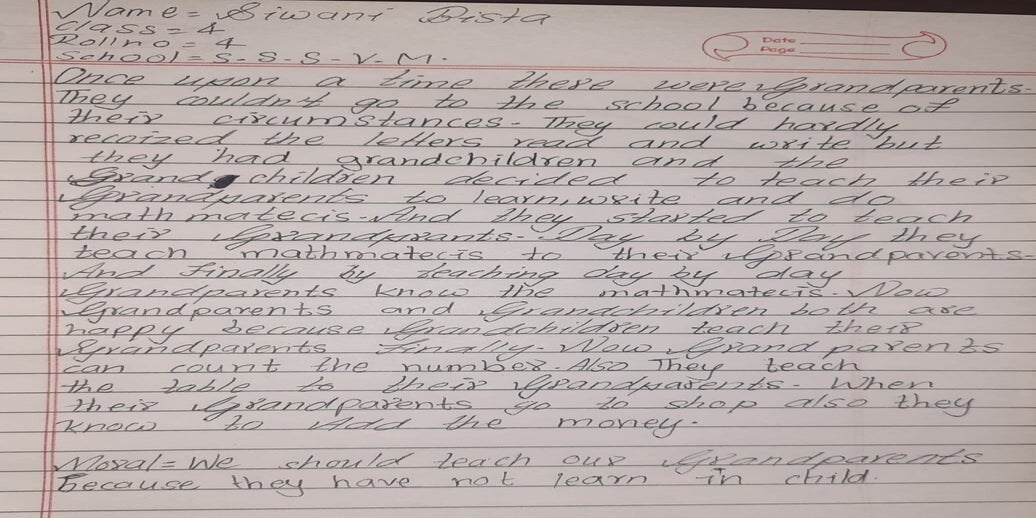 Name = Siwani Bista
Class = 4
Rollno = 4
School = S-S-S-V-M.
Date
Page
Once upon a time there were Grandparents.
They couldn't go to the school because of
their circumstances. They could hardly
recoized the letters read and write but
they had grandchildren and the
Grand children decided to teach their
Grandparents to learn, write and do
mathmatecis. And they started to teach
their Grandparants. Day by Day they
teach mathmatecis to their Grandparents.
And finally by teaching day by day
Grandparents know the mathmatecis. Now
Grandparents and Grandchildren both are
happy because Grandchildren teach their
Grandparents finally. Now Grand parents
can count the number. Also They teach
the table to their Grandparents. When
their Grandparents go to shop also they
know to Add the money.
Moral = We should teach our Grandparents
because they have not learn in child.